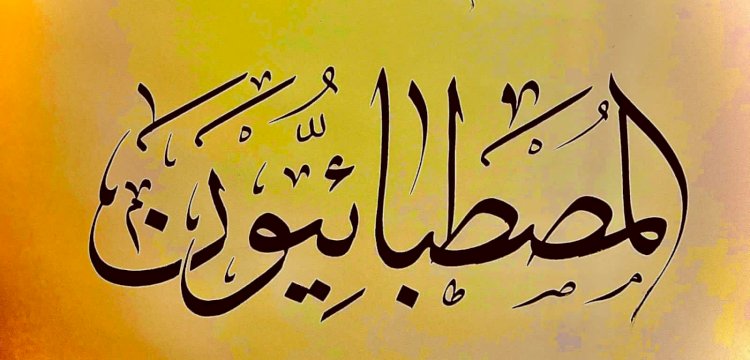 المُصْطَبَائِيُّوْنَ